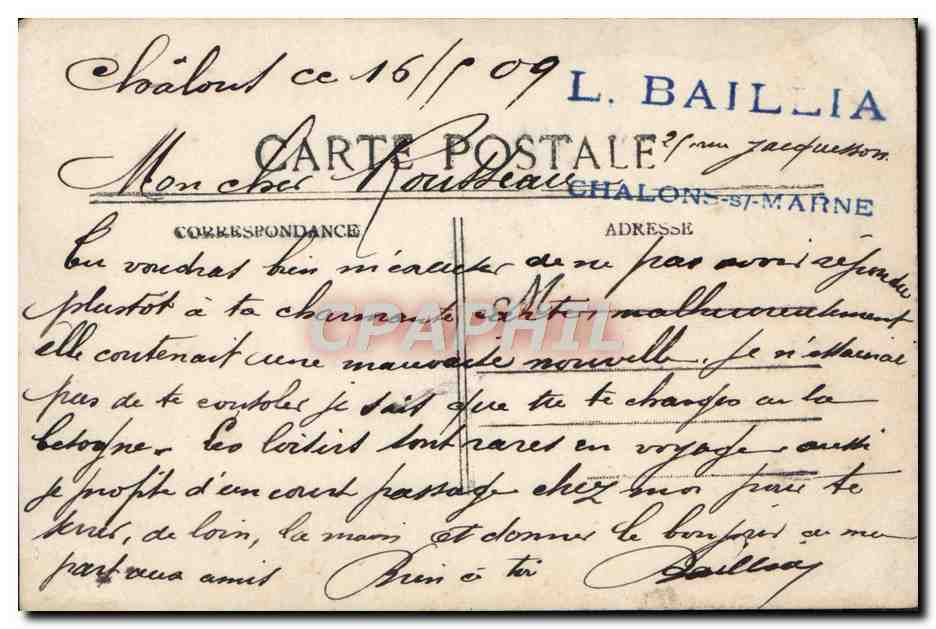 Châlons ce 16/5 09
L. BAILLIA
CARTE POSTALE
25 rue Jacquesson
Mon cher Rousseau
CHALONS-s/-MARNE
CORRESPONDANCE
ADRESSE
Tu voudras bien m'excuser de ne pas avoir répondu
M
plustôt à ta charmante carte malheureusement
CPAPHIL
elle contenait une mauvaise nouvelle. Je n'essaierai
pas de te consoler je sais que tu te charges de la
besogne. Les loisirs sont rares en voyage aussi
je profite d'un court passage chez moi pour te
serrer, de loin, la main et donner le bonjour de ma
part aux amis Bien à toi Baillia